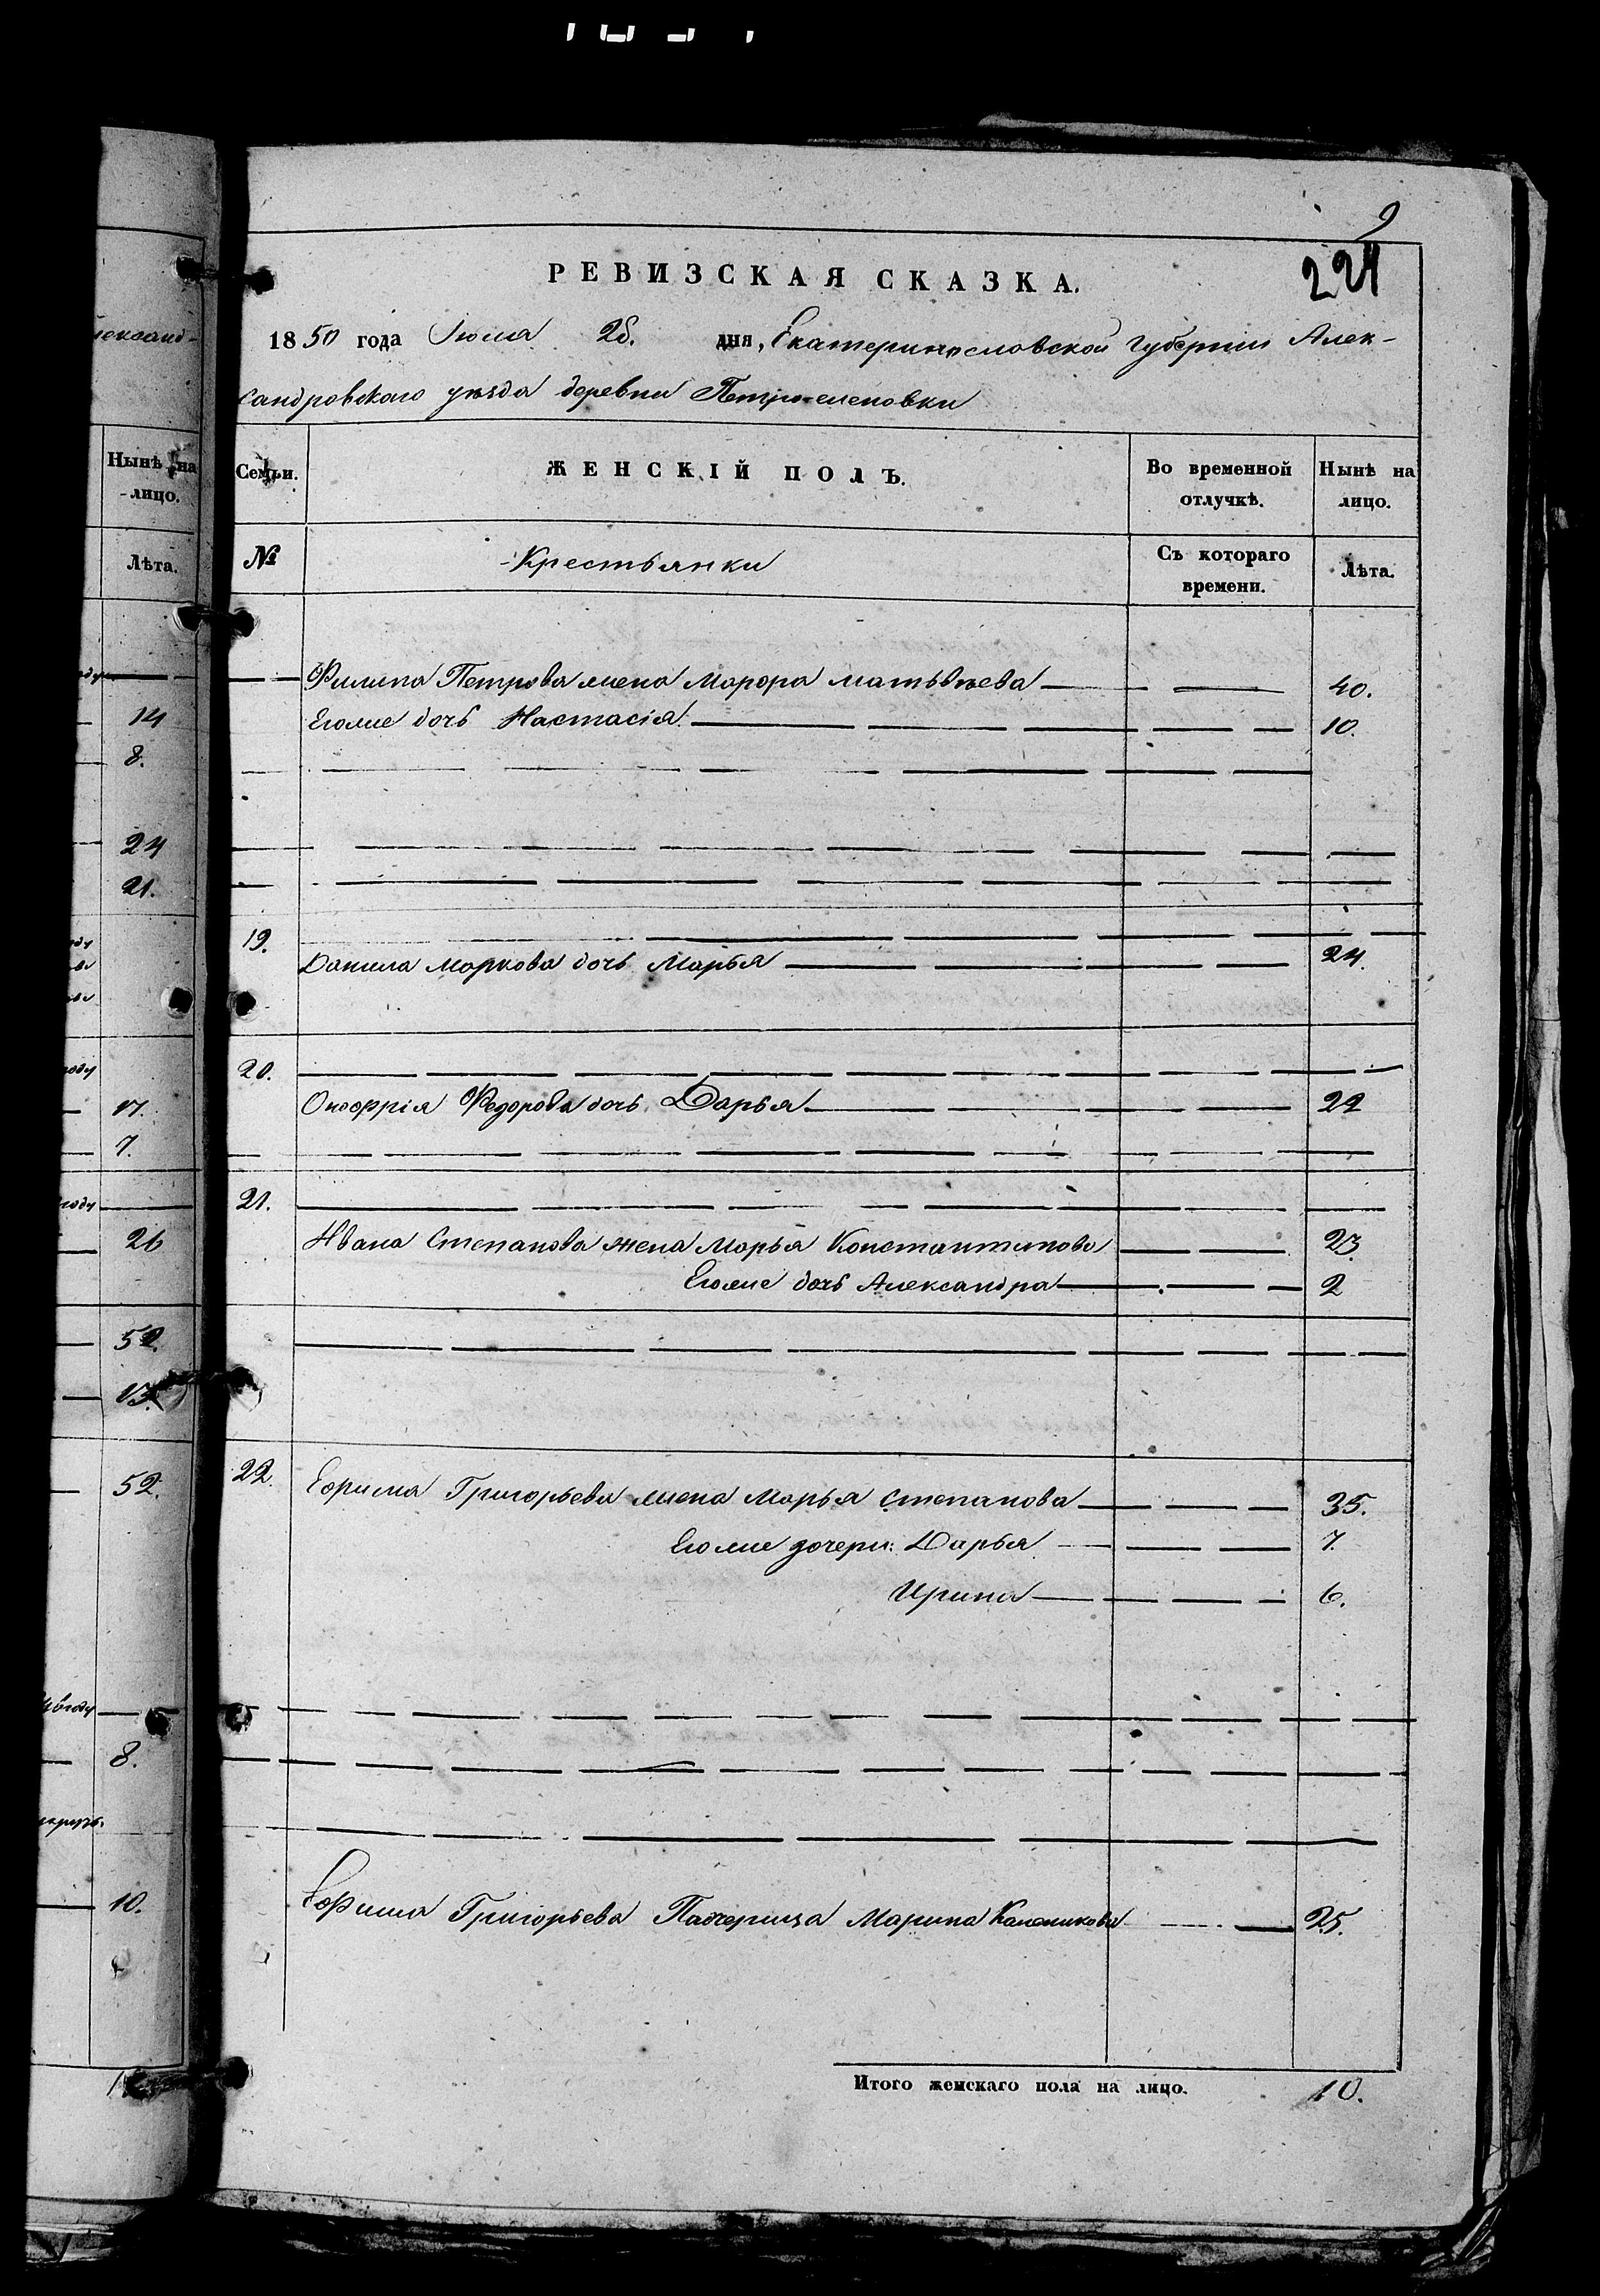 9
224
РЕВИЗСКАЯ СКАЗКА.
1850 года Июля 26. дня, Екатеринославской Губерніи Алек-
сандровского уѣзда деревни Петро-еленовки
Семьи. ЖЕНСКІЙ ПОЛЪ. Во временной отлучкѣ. Нынѣ на лицо.
№ Крестьянки Съ котораго времени. Лѣта.
Филипа Петрова жена Марфа Матьвѣева 40.
Егоже дочь Настасія 10.
19.
Данила Маркова дочь Марья 24.
20.
Оноффрія Федорова дочь Дарья 22
21.
Ивана Степанова жена Марья Константинова 23
Егоже дочь Александра 2
22. Ефима Григорьева жена Марья Степанова 35.
Егоже дочери: Дарья 7.
Ирина 6.
Ефима Григорьева Падчерица Марина 25.
Итого женскаго пола на лицо. 10.
Нынѣ на
лицо.
Лѣта.
14
8.
24
21.
17.
7.
26
52.
13.
52.
8.
10.